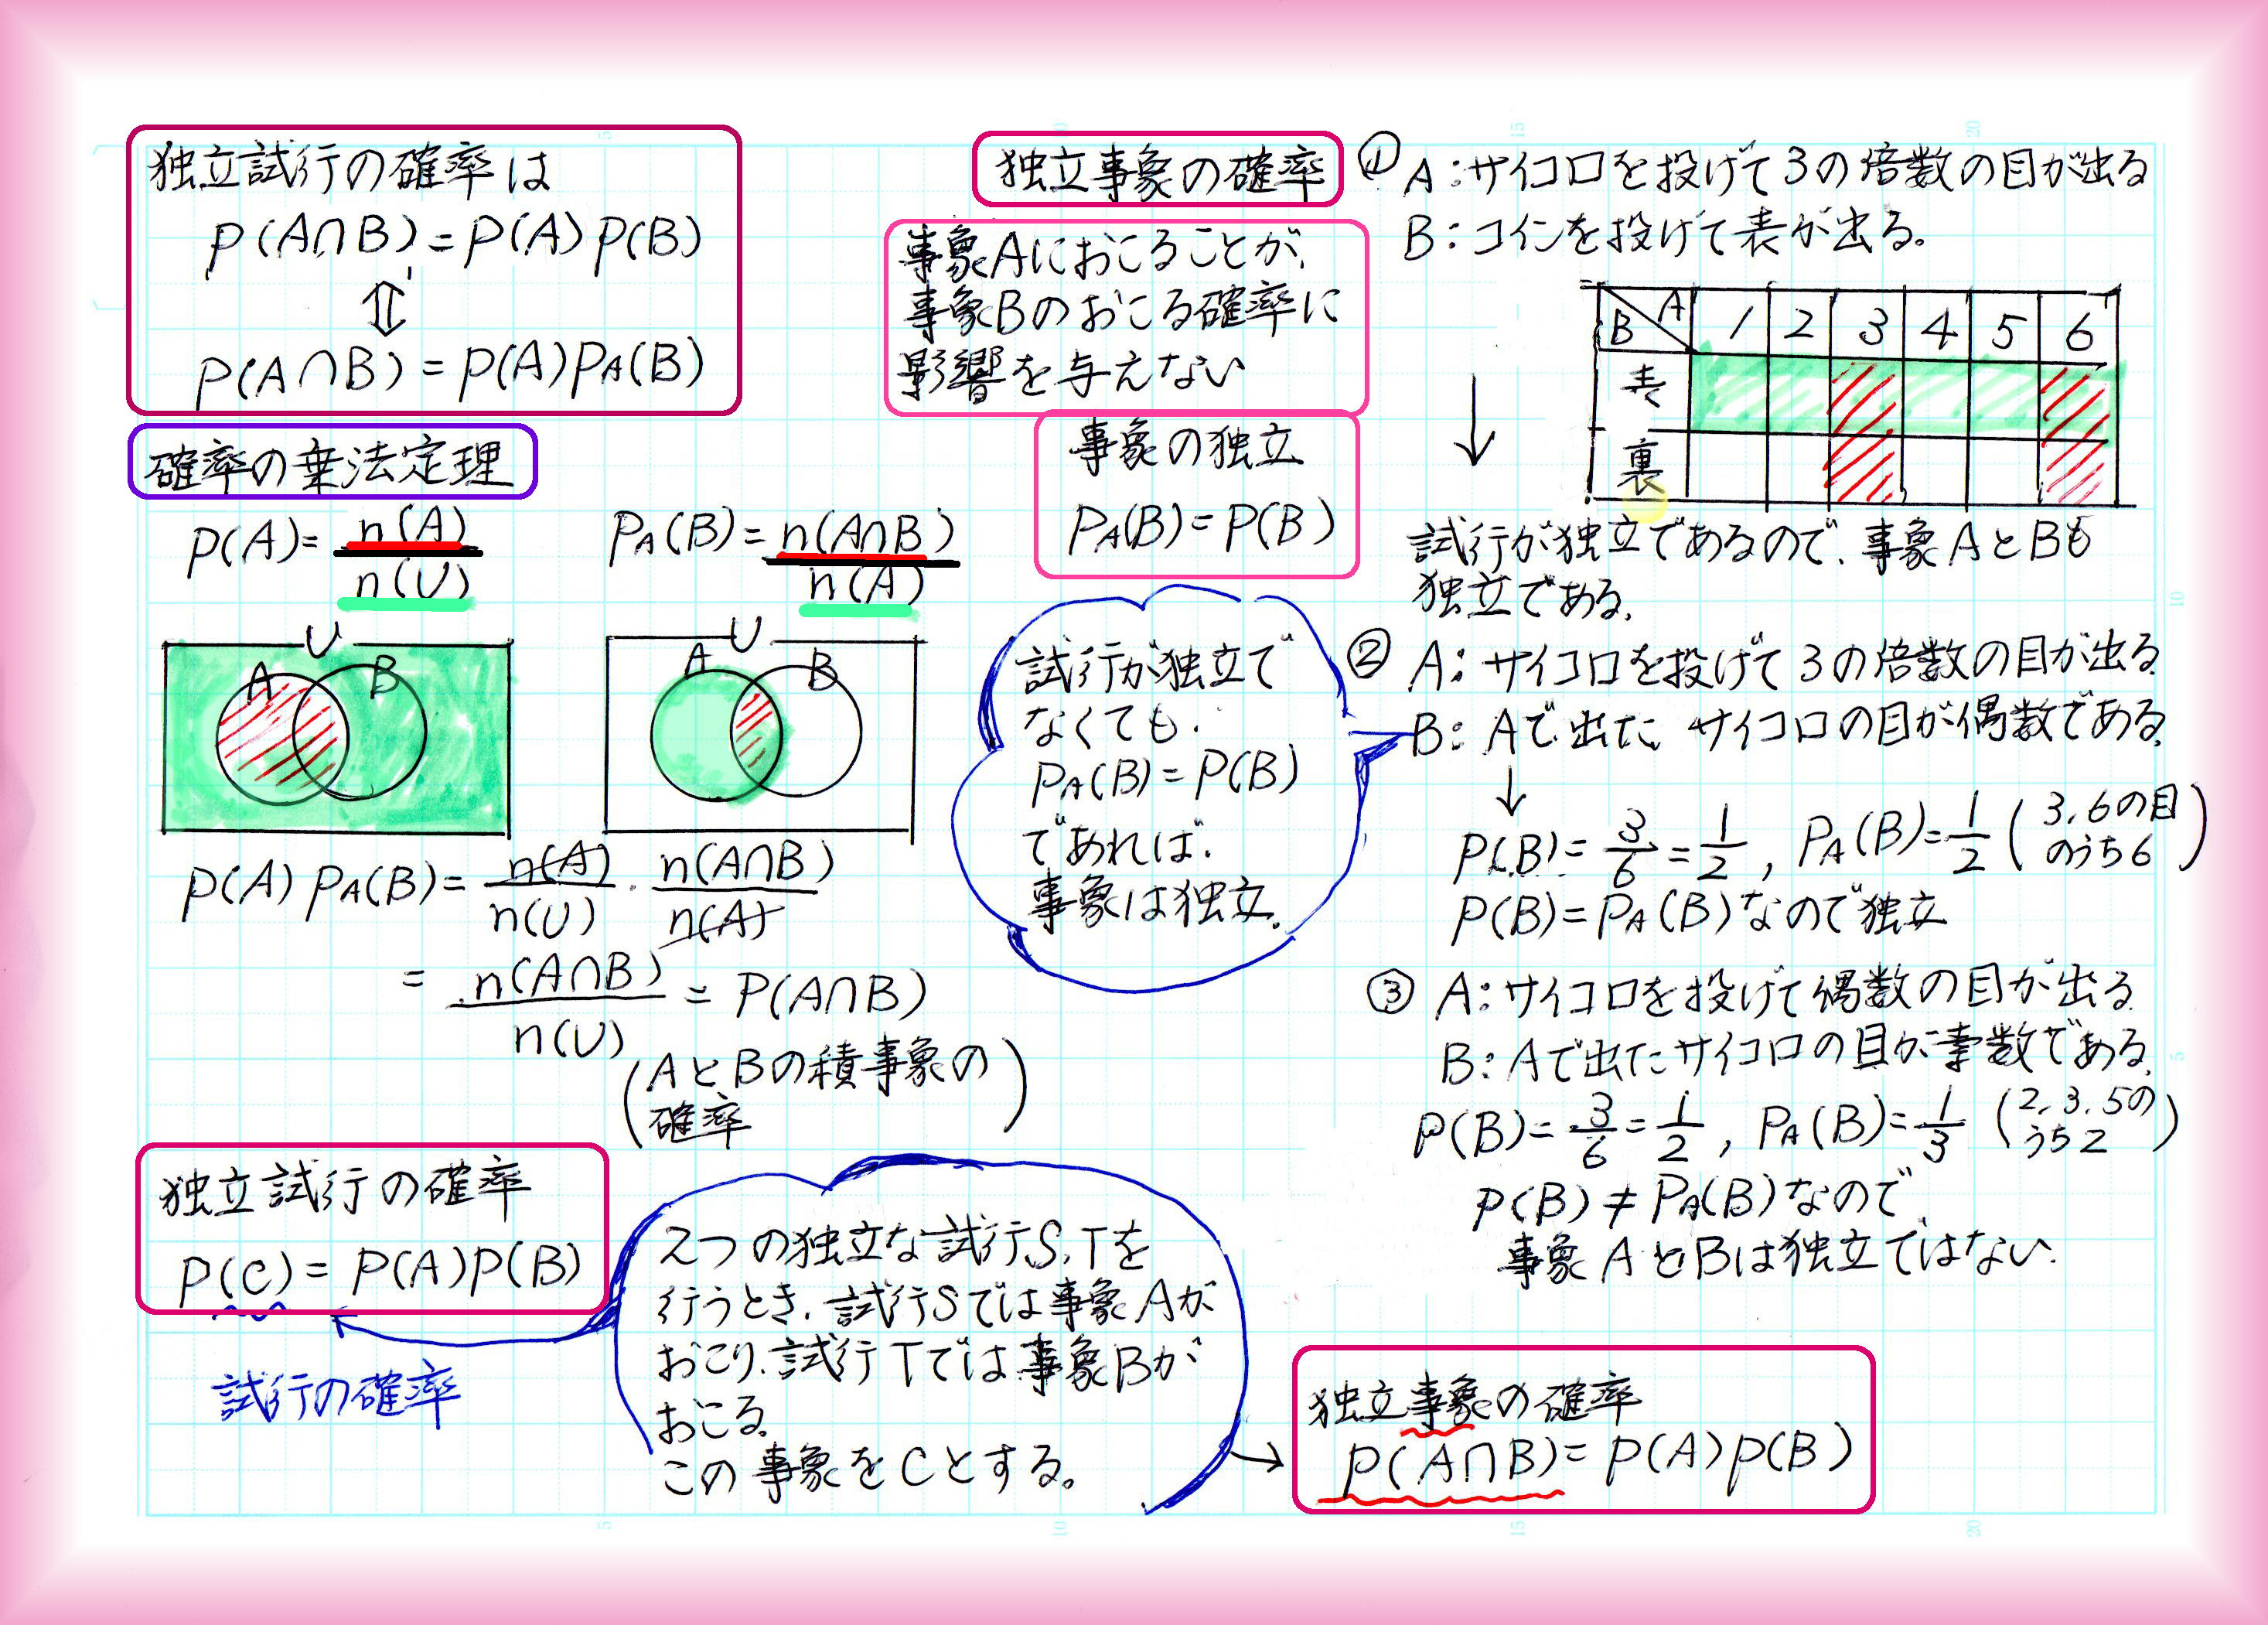 独立試行の確率は
P(A∩B)=P(A)P(B)
⇕
P(A∩B)=P(A)PA(B)
確率の乗法定理
P(A)=n(A)/n(U)
PA(B)=n(A∩B)/n(A)
U
A B
U
A B
P(A)PA(B)=n(A)/n(U)・n(A∩B)/n(A)
=n(A∩B)/n(U)=P(A∩B)
(AとBの積事象の
確率)
独立試行の確率
P(C)=P(A)P(B)
試行の確率
2つの独立な試行S,Tを
行うとき、試行Sでは事象Aが
おこり、試行Tでは事象Bが
おこる。
この事象をCとする。
独立事象の確率
事象Aにおこることが、
事象Bのおこる確率に
影響を与えない
事象の独立
PA(B)=P(B)
試行が独立で
なくても、
PA(B)=P(B)
であれば、
事象は独立。
① A:サイコロを投げて3の倍数の目が出る
B:コインを投げて表が出る。
↓
B A 1 2 3 4 5 6
表
裏
試行が独立であるので、事象AとBも
独立である。
② A:サイコロを投げて3の倍数の目が出る。
B:Aで出た、サイコロの目が偶数である。
↓
P(B)=3/6=1/2, PA(B)=1/2(3,6の目
のうち6)
P(B)=PA(B)なので独立
③ A:サイコロを投げて偶数の目が出る。
B:Aで出たサイコロの目が素数である。
P(B)=3/6=1/2, PA(B)=1/3(2,3,5の
うち2)
P(B)≠PA(B)なので、
事象AとBは独立ではない。
→
独立事象の確率
P(A∩B)=P(A)P(B)